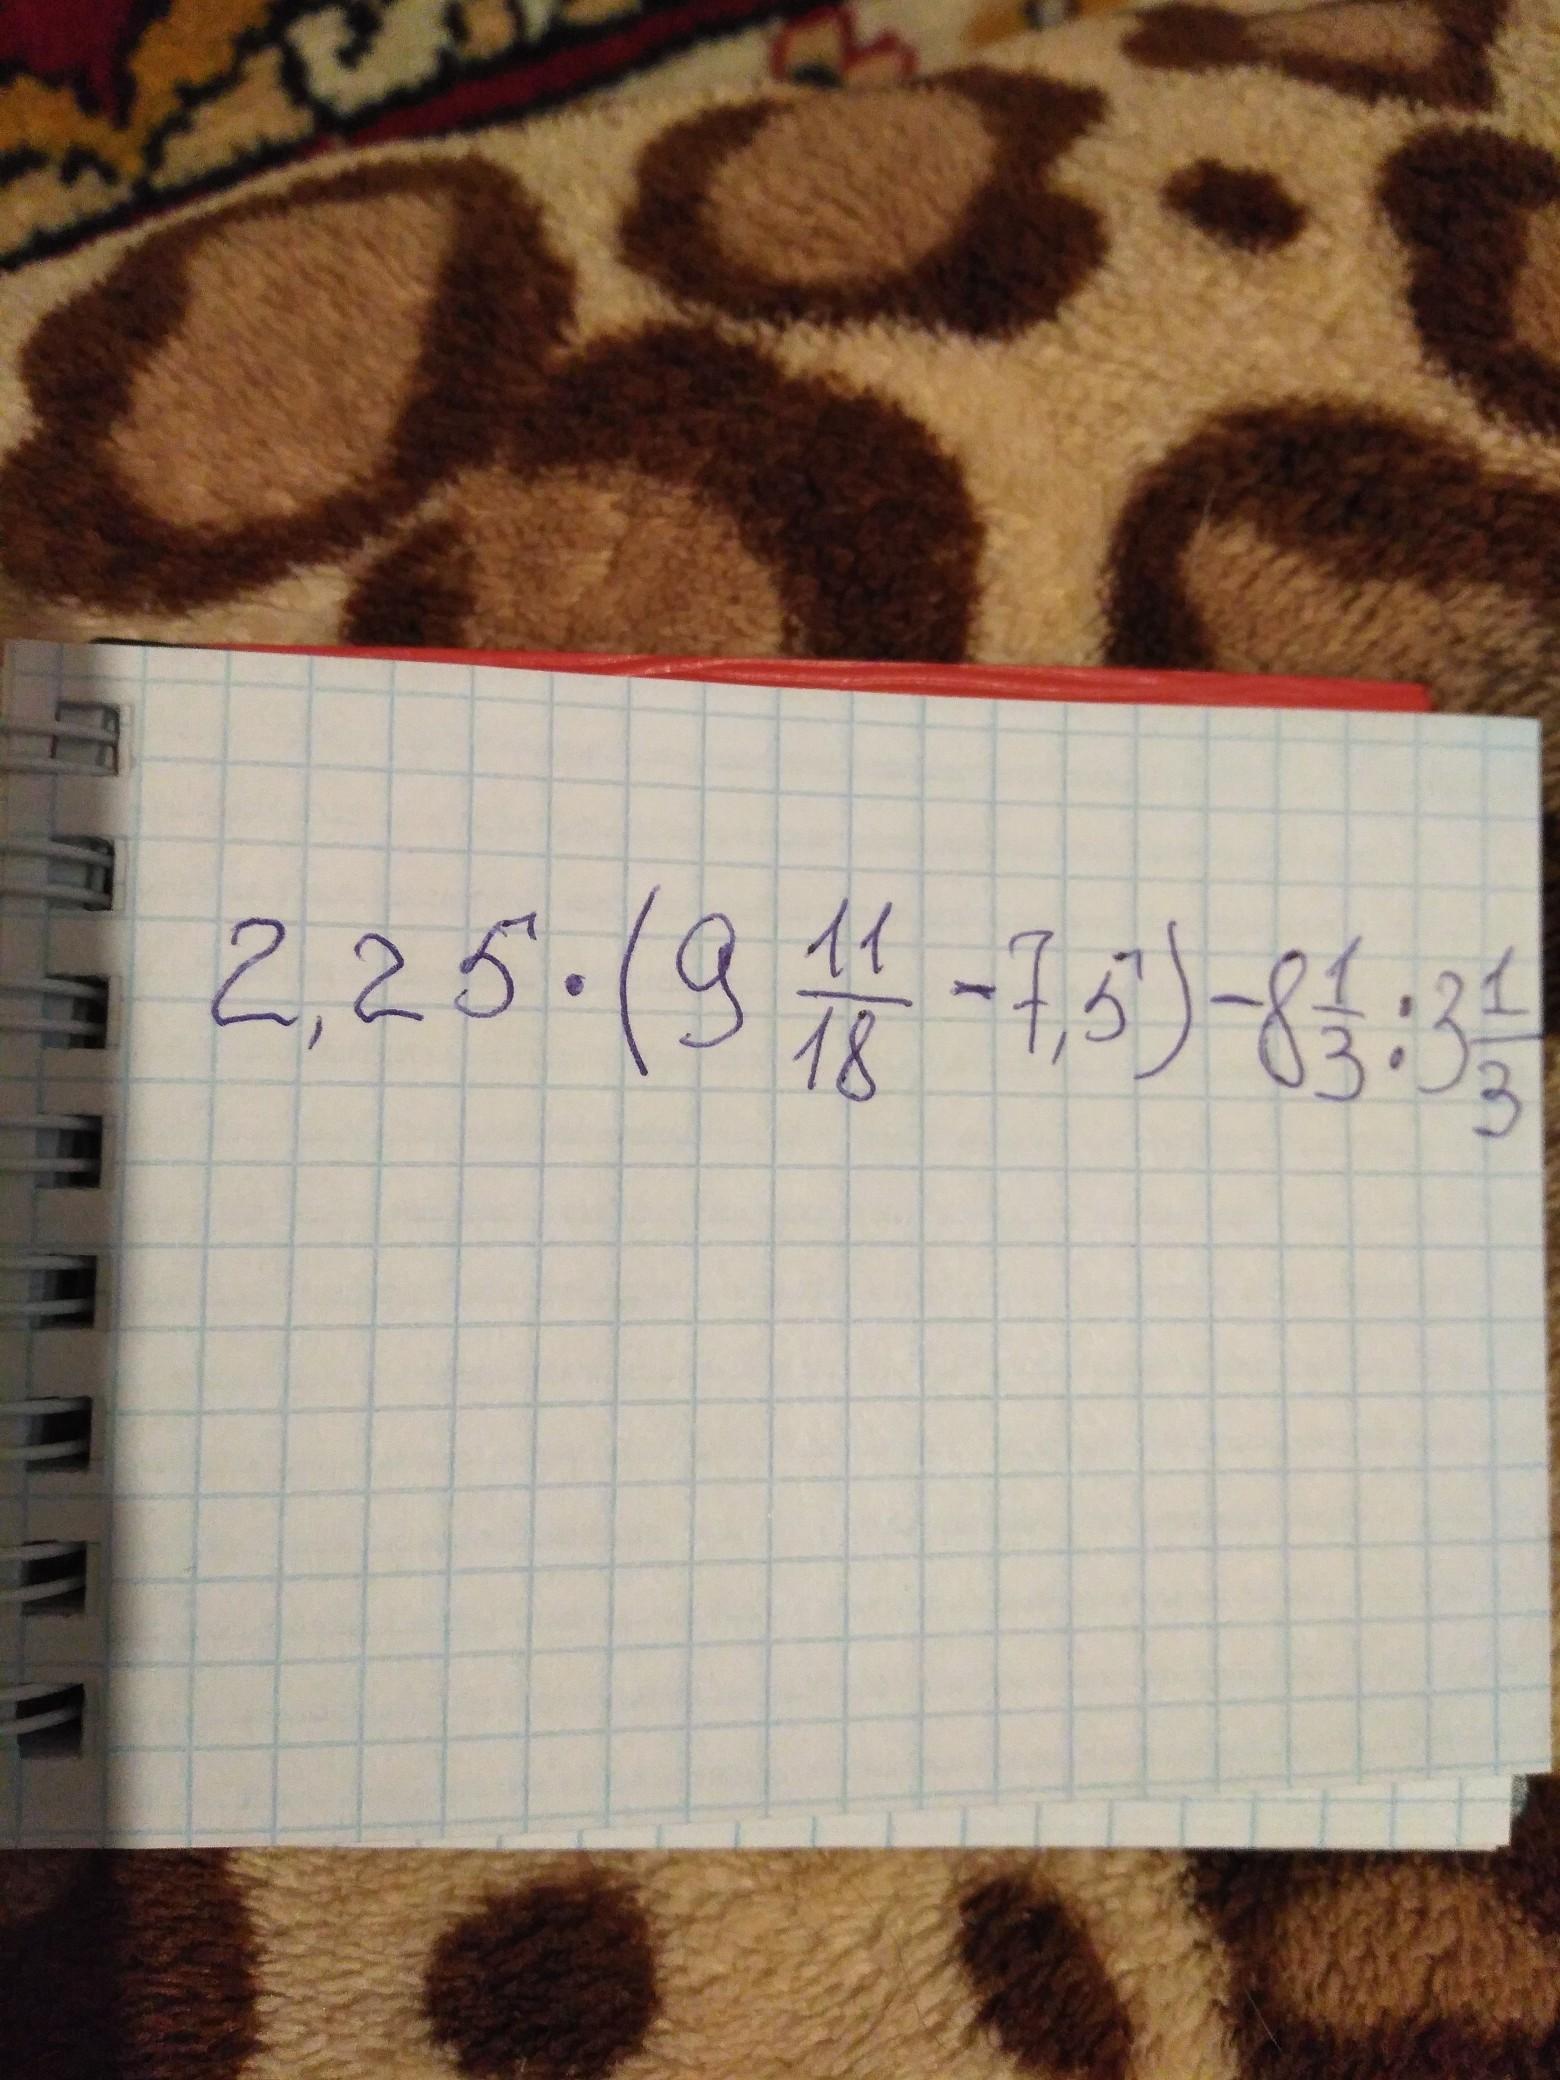 2,25·(9 11/18 -7,5)-8 1/3:3 1/3